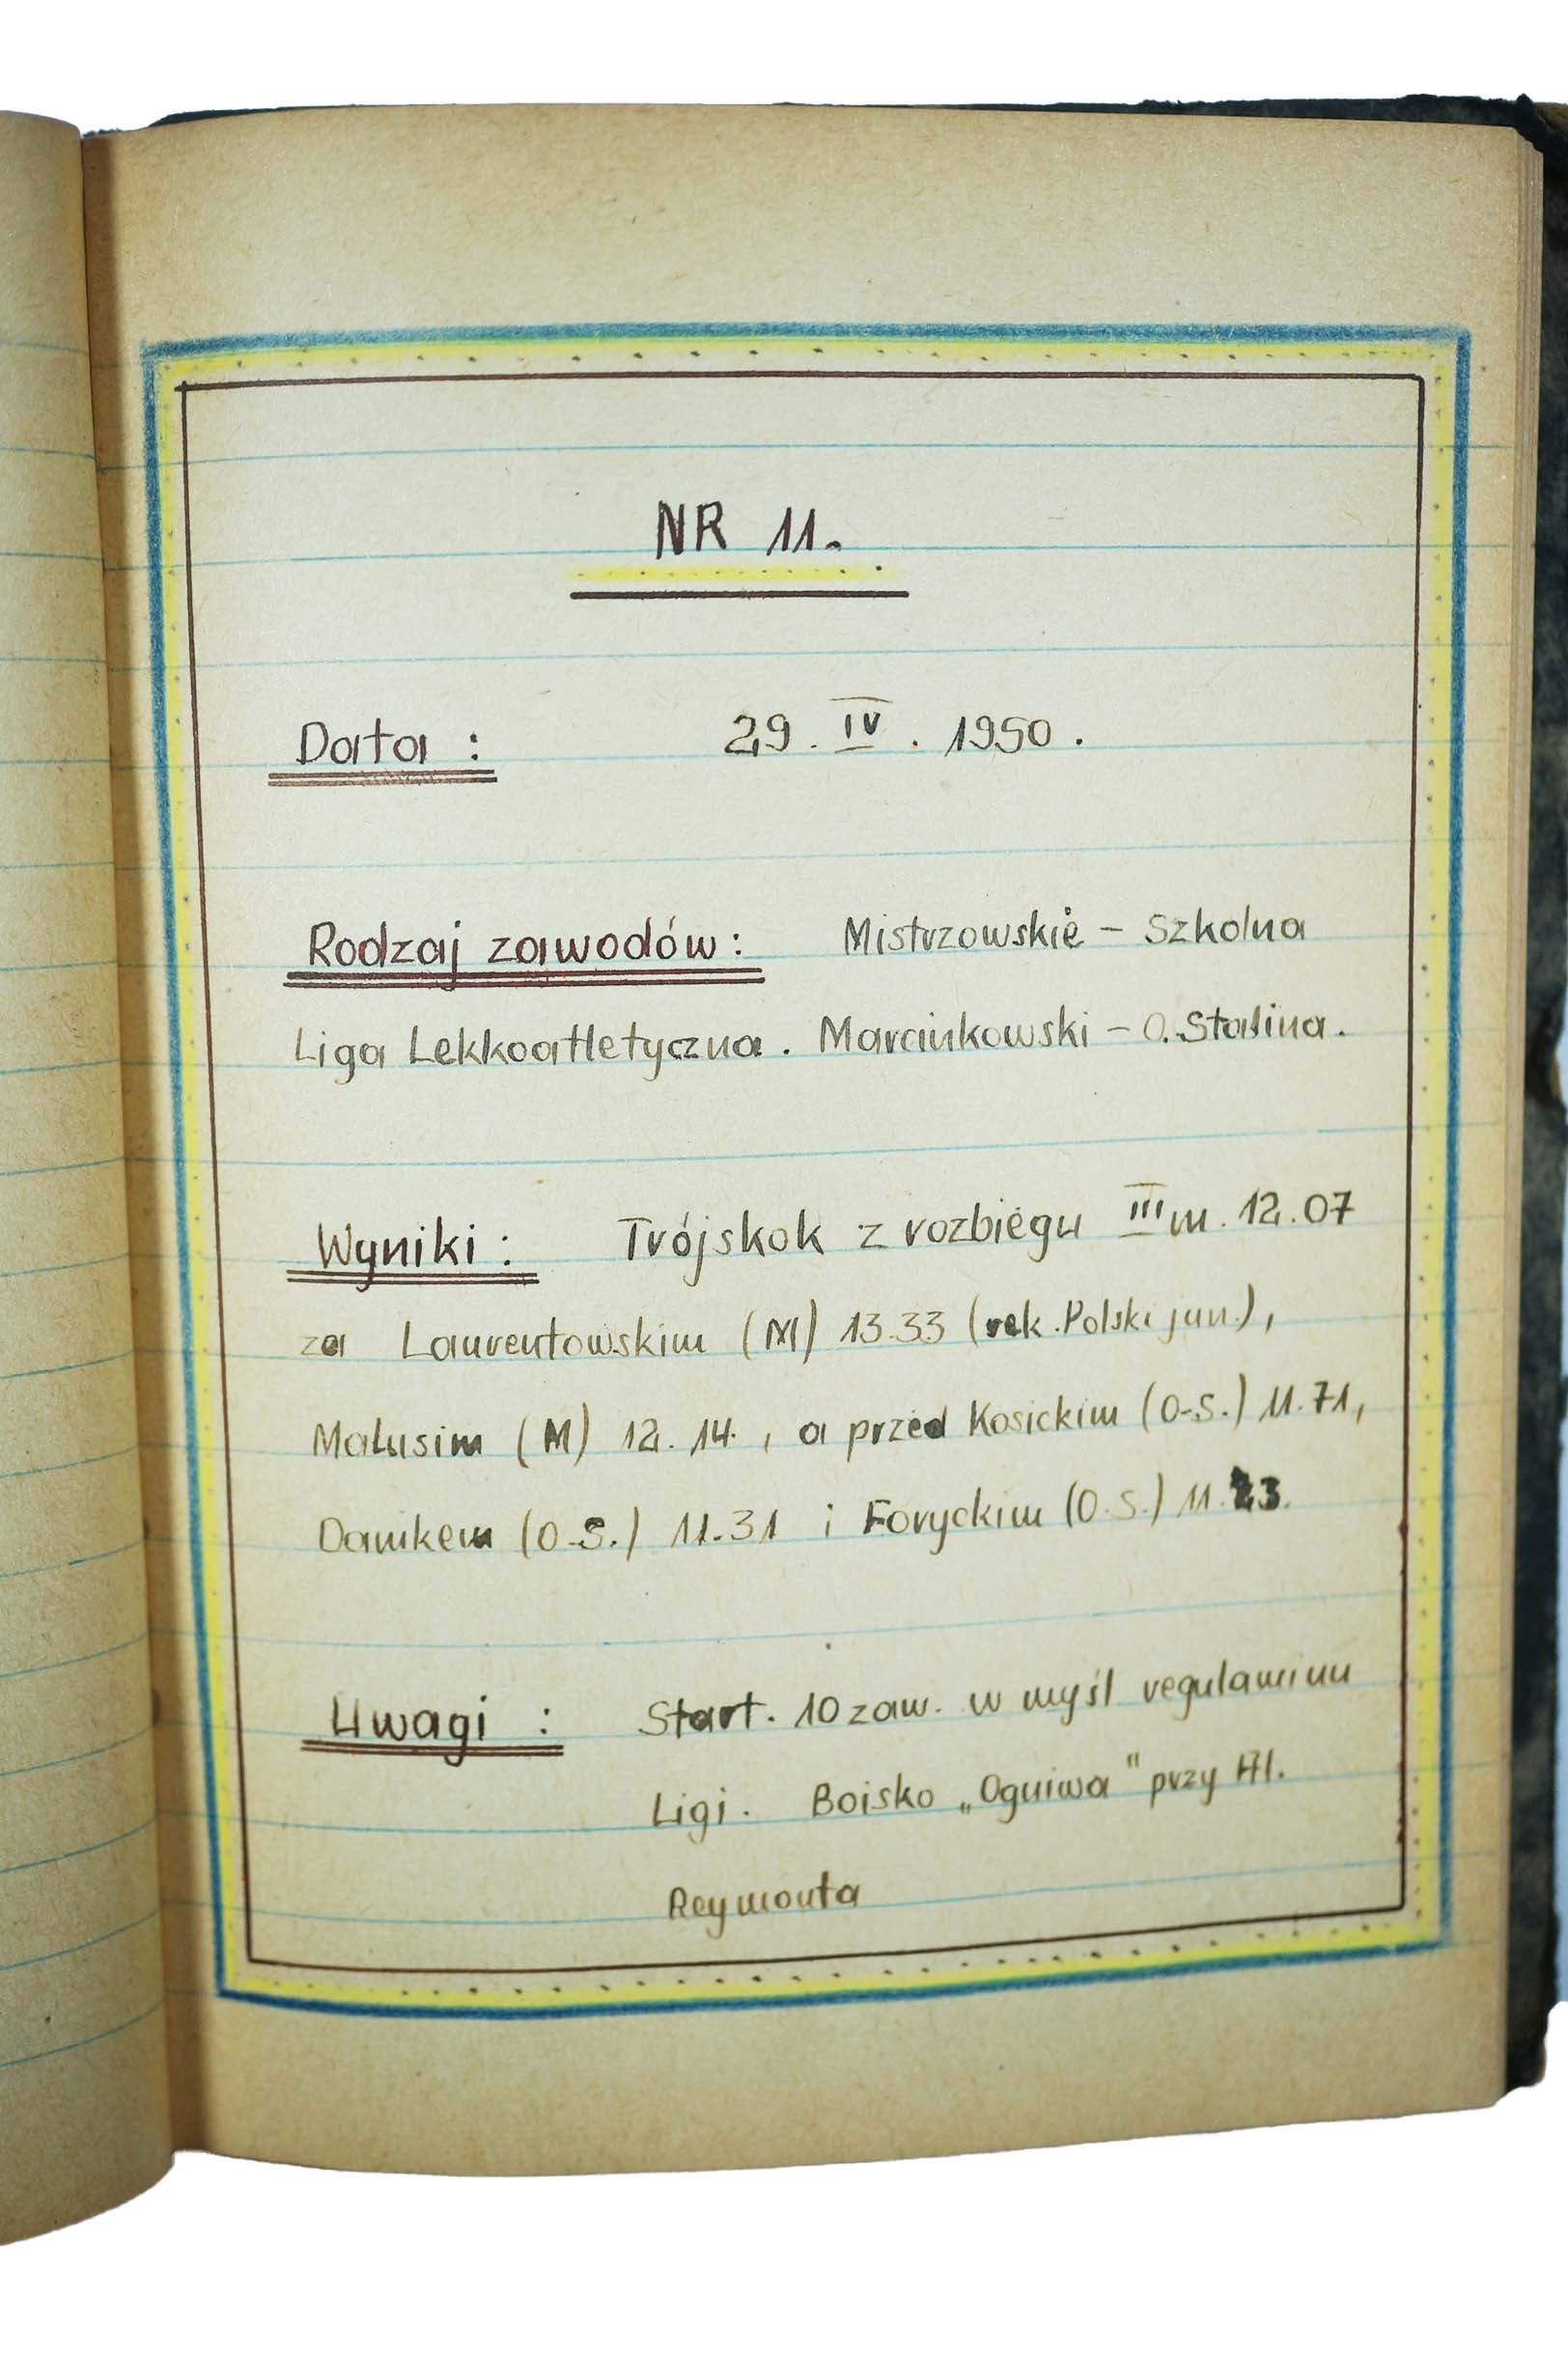 NR 11.
Data : 29. IV. 1950.
Rodzaj zawodów: Mistrzowskie – Szkolna
Liga Lekkoatletyczna. Marcinkowski – O. Stalina.
Wyniki : Trójskok z rozbiegu III m. 12.07
za Laurentowskim (M) 13.33 (rek. Polski jun.),
Malusim (M) 12.14., a przed Kosickim (O-S.) 11.71,
Danikem (O-S.) 11.31 i Foryckim (O.S.) 11.23.
Uwagi : Start. 10 zaw. w myśl regulaminu
Ligi. Boisko „Ogniwa" przy Al.
Reymonta